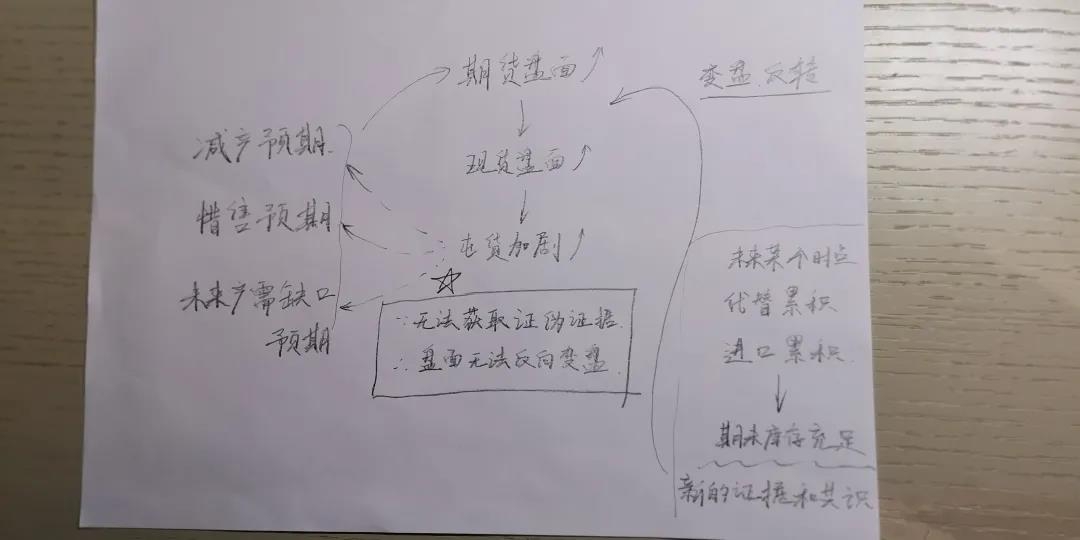 期货盘面↗
变盘、反转
减产预期
现货盘面↗
惜售预期
屯货加剧↗
未来产需缺口
预期
∵无法获取证伪证据.
∴盘面无法反向变盘.
未来某个时点
代替累积
进口累积
期末库存充足
新的证据和共识